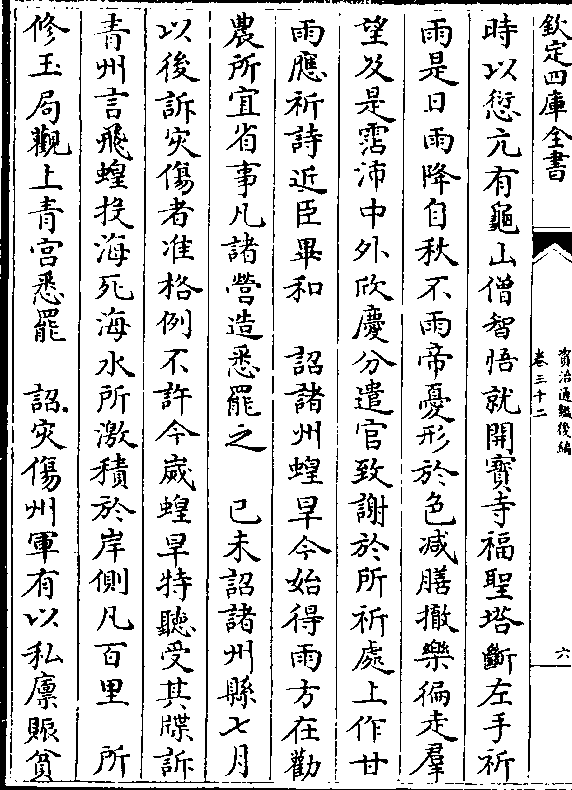 欽定四庫全書
資治通鑑後編
卷三十二
六
時以愆亢有龜山僧智悟就開寳寺福聖塔斷左手祈
雨是日雨降自秋不雨帝憂形於色减膳撤樂徧走羣
望及是霑沛中外欣慶分遣官致謝於所祈處上作甘
雨應祈詩近臣畢和　詔諸州蝗旱今始得雨方在勸
農所宜省事凡諸營造悉罷之　己未詔諸州縣七月
以後訴災傷者准格例不許今歲蝗旱特聽受其牒訴
青州言飛蝗投海死海水所激積於岸側凡百里　所
修玉局觀上青宫悉罷　詔災傷州軍有以私廪賑貧